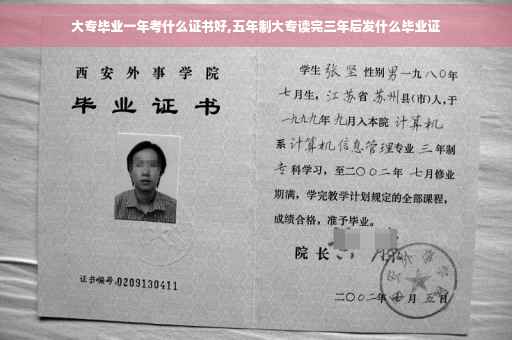 大专毕业一年考什么证书好,五年制大专读完三年后发什么毕业证
西安外事学院
毕业证书
证书编号:0209130411
学生 张坚 性别男一九八〇年
七月生，江苏省 苏州县(市)人，于
一九九九年九月入本院 计算机
系 计算机信息管理专业 三年制
专科学习，至二〇〇二年 七月修业
期满，学完教学计划规定的全部课程，
成绩合格，准予毕业。
院长
二〇〇二年 月五日